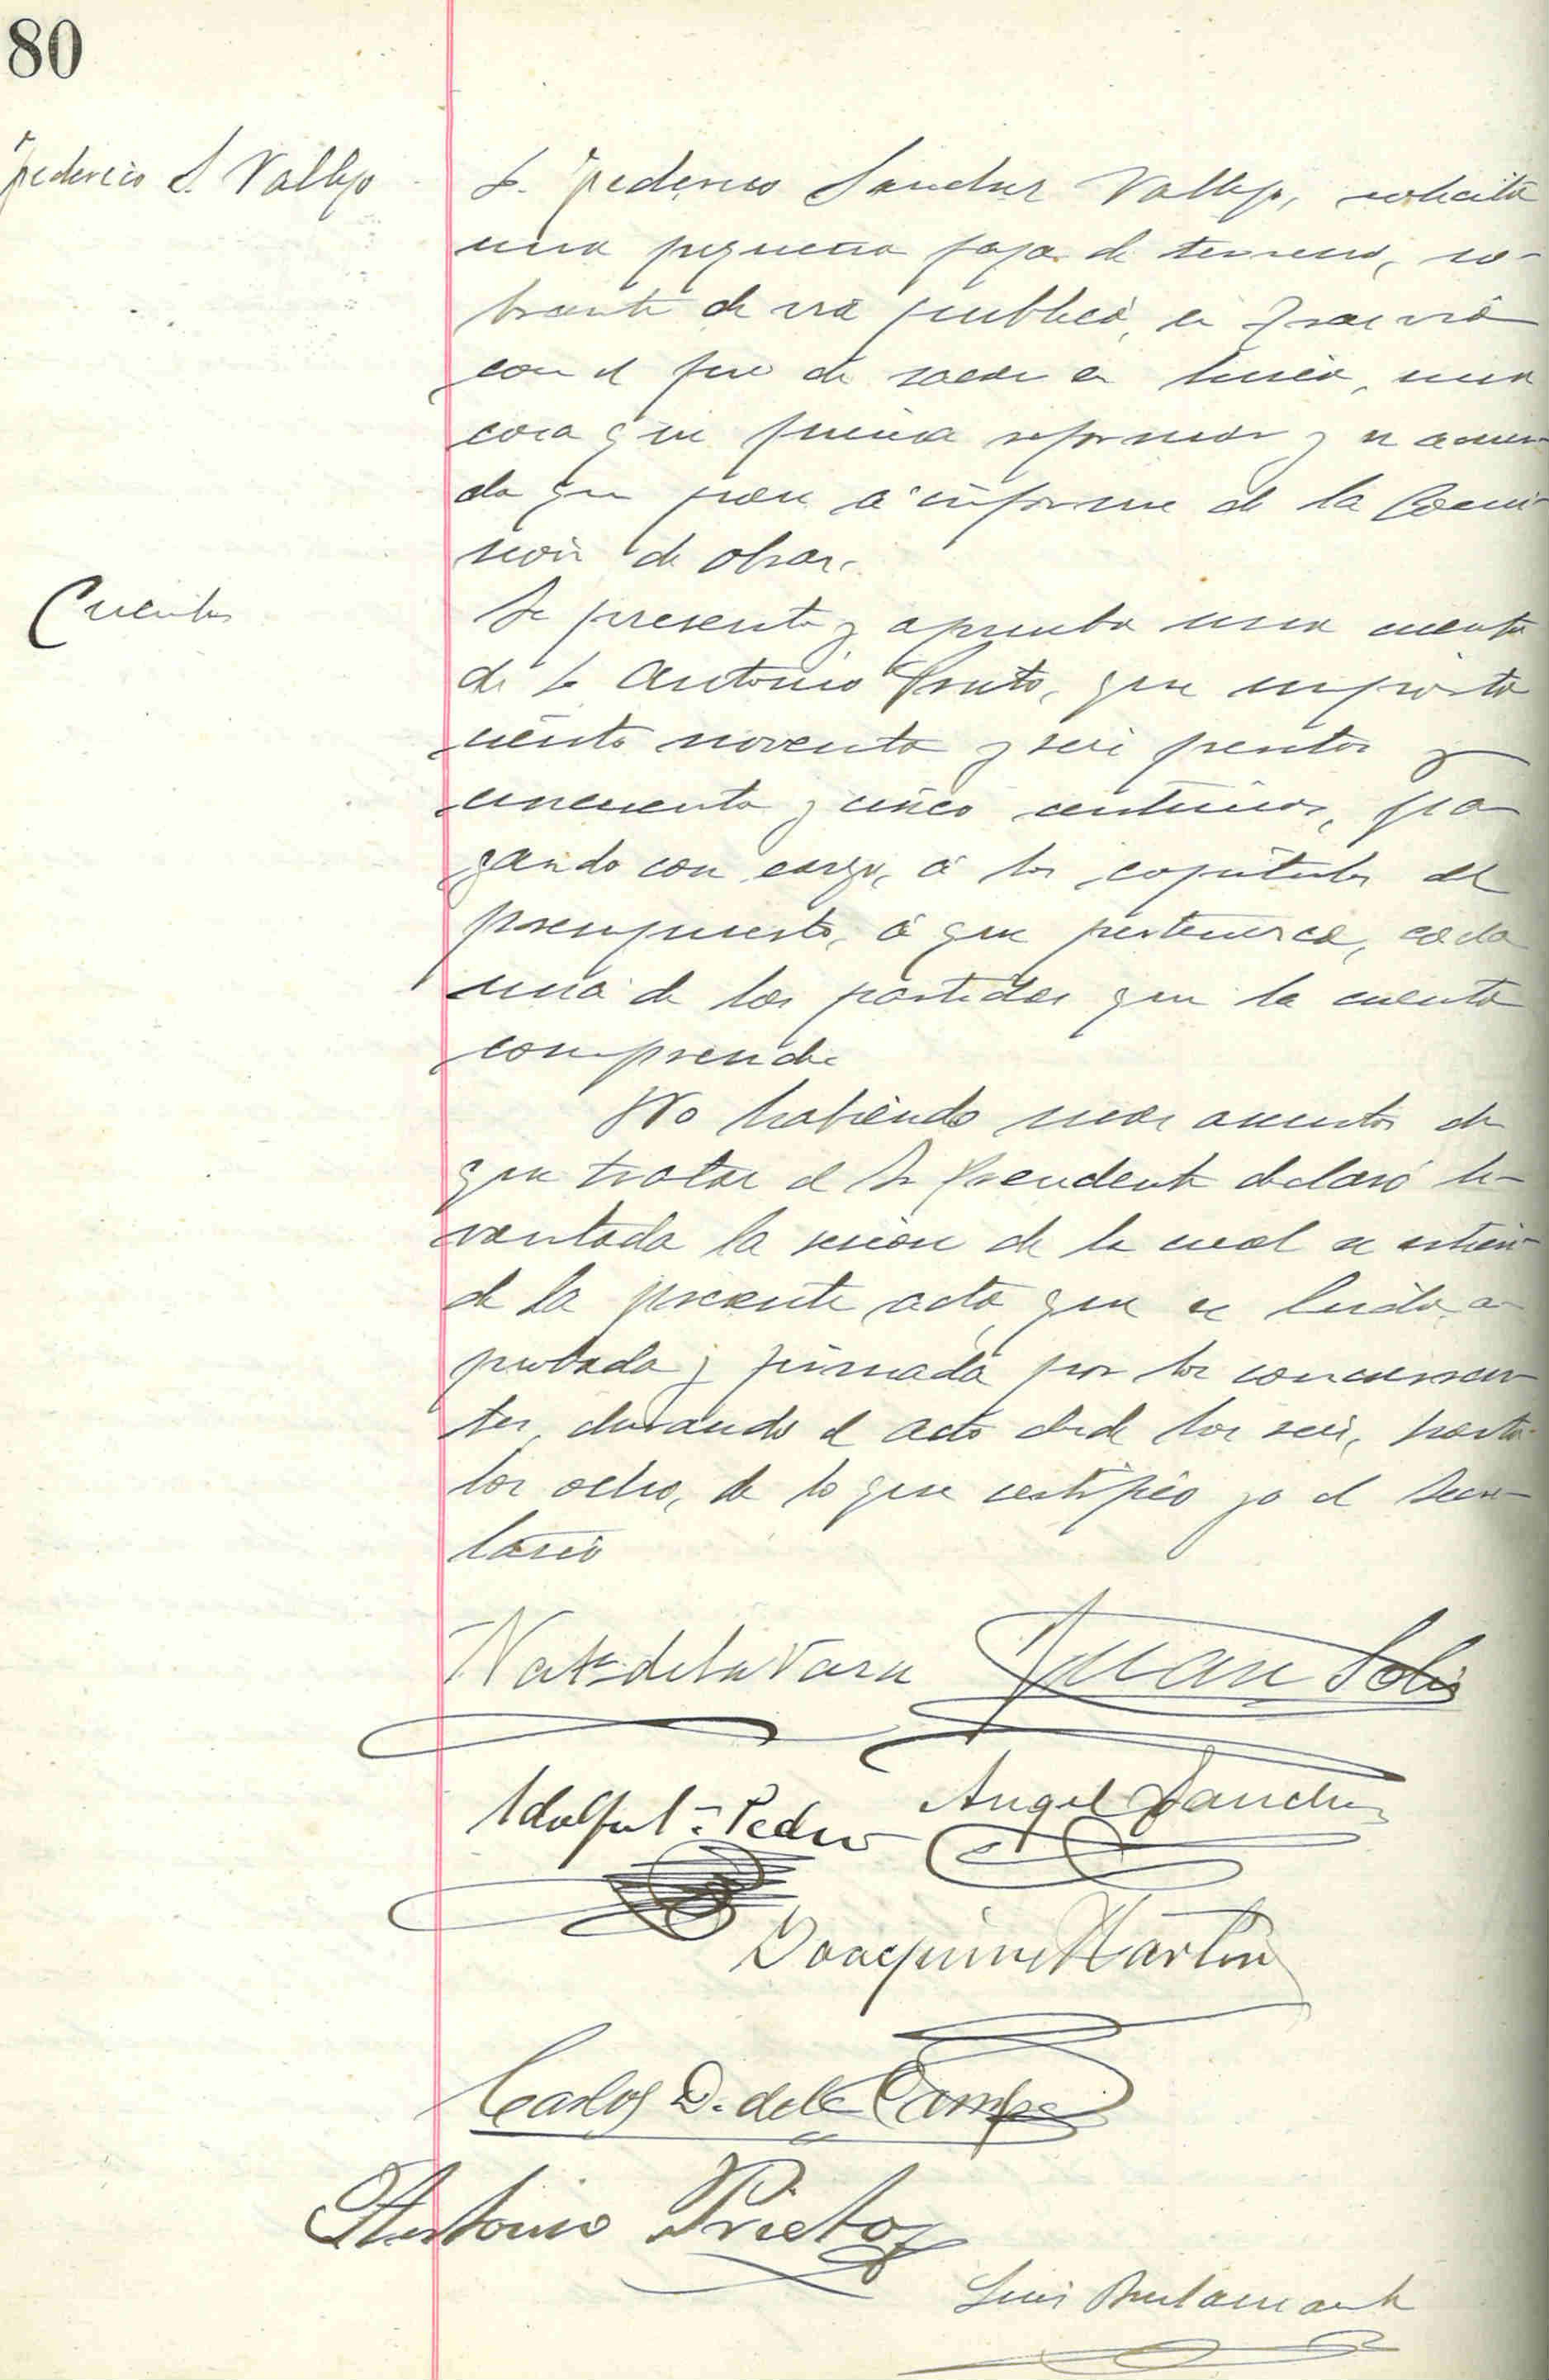 80
Federico S Vallejo
D. Federico Sanchez Vallejo, solicita
una pequeña faja de terreno, so-
brante de via publica, en
con el fin de sacar a linea, una
casa que piensa reformar y se acuer-
da que pase á informe de la Comi-
sión de obras.
Cuentas
Se presenta y aprueba una cuenta
de D Antonio Prieto, que importa
ciento noventa y seis pesetas y
cincuenta y cinco centimos, pa
gando con cargo, á los capitulos del
presupuesto, á que pertenezca, cada
una de las partidas que la cuenta
comprende
No habiendo mas asuntos de
que tratar el Sr Presidente declaró le-
vantada la sesion de la cual se estien-
de la presente acta, que es leida, a-
probada y firmada por los concurren-
tes, durando el acto desde las seis, hasta
las ocho, de lo que certifico yo el Secre-
tario
de la Vara Juan Solis
Angel Sanchez
Joaquin Martin
Carlos D. de la Campa
Antonio Prieto
Luis Bustamante